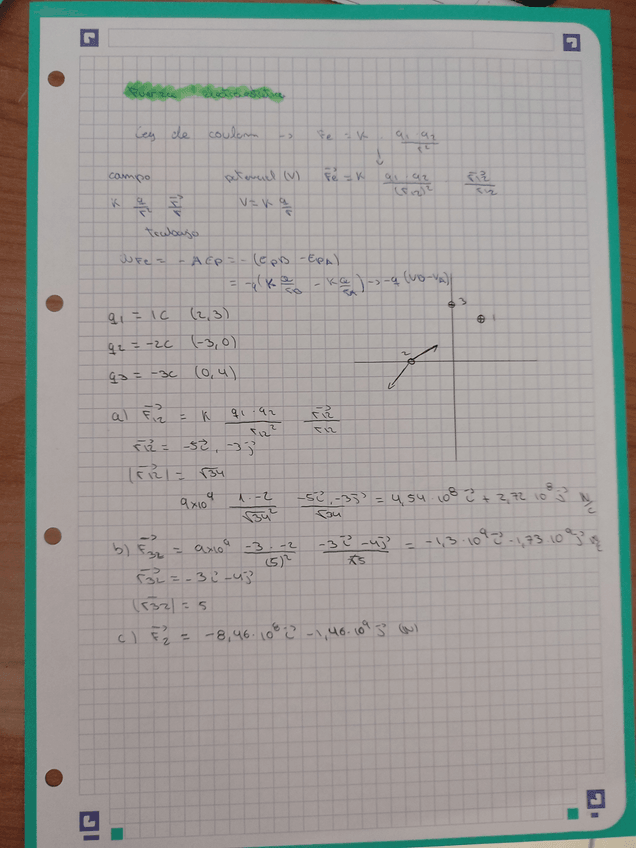 Fuerza electrostática
Ley de coulom -> Fe = K q1 · q2 / r²
campo potencial (V) Fe = K q1 · q2 / (r12)² r12 / r12
K q / r² r / r V = K q / r
trabajo
WFe = - ΔEp = - (EpB - EpA)
= -q (K Q / rB - K Q / rA) -> -q (VB - VA)
q1 = 1C (2,3)
q2 = -2C (-3,0)
q3 = -3C (0,4)
3
1
2
a) F12 = K q1 · q2 / r12² r12 / r12
r12 = -5i, -3j
|r12| = √34
9x10⁹ 1 · -2 / √34² -5i, -3j / √34 = 4,54 · 10⁸ i + 2,72 10⁸ j N/C
b) F32 = 9x10⁹ -3 · -2 / (5)² -3i - 4j / √5 = -1,3 · 10⁹ i - 1,73 10⁹ j
r32 = -3i - 4j
|r32| = 5
c) F2 = -8,46 · 10⁸ i - 1,46 · 10⁹ j (N)